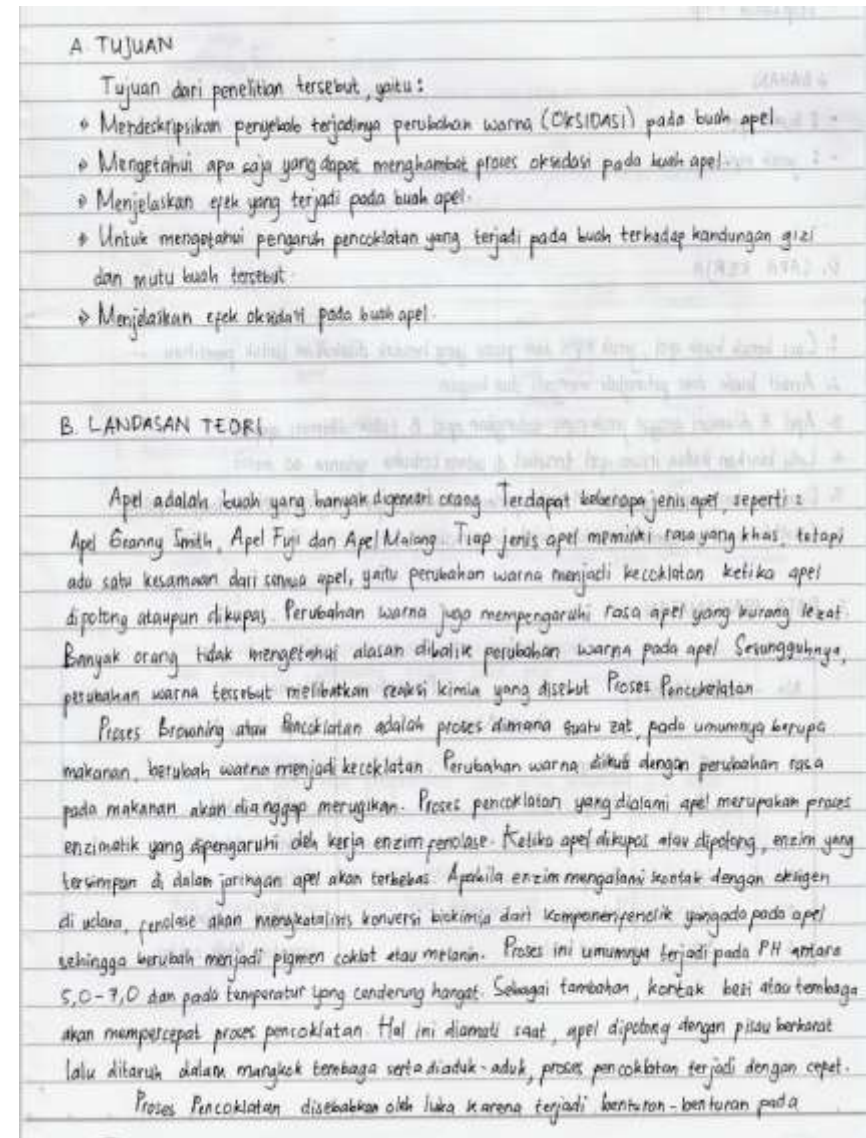 A. TUJUAN
Tujuan dari penelitian tersebut, yaitu :
Mendeskripsikan penyebab terjadinya perubahan warna (OKSIDASI) pada buah apel.
Mengetahui apa saja yang dapat menghambat proses oksidasi pada buah apel.
Menjelaskan efek yang terjadi pada buah apel.
Untuk mengetahui pengaruh pencoklatan yang terjadi pada buah terhadap kandungan gizi
dan mutu buah tersebut.
Menjelaskan efek oksidasi pada buah apel.
B. LANDASAN TEORI
Apel adalah buah yang banyak digemari orang. Terdapat beberapa jenis apel, seperti :
Apel Granny Smith, Apel Fuji dan Apel Malang. Tiap jenis apel memiliki rasa yang khas, tetapi
ada satu kesamaan dari semua apel, yaitu perubahan warna menjadi kecoklatan ketika apel
dipotong ataupun dikupas. Perubahan warna juga mempengaruhi rasa apel yang kurang lezat.
Banyak orang tidak mengetahui alasan dibalik perubahan warna pada apel. Sesungguhnya,
perubahan warna tersebut melibatkan reaksi kimia yang disebut Proses Pencokelatan
Proses Browning atau Pencoklatan adalah proses dimana suatu zat, pada umumnya berupa
makanan, berubah warna menjadi kecoklatan. Perubahan warna diikuti dengan perubahan rasa
pada makanan akan dianggap merugikan. Proses pencoklatan yang dialami apel merupakan proses
enzimatik yang dipengaruhi oleh kerja enzim fenolase. Ketika apel dikupas atau dipotong, enzim yang
tersimpan di dalam jaringan apel akan terbebas. Apabila enzim mengalami kontak dengan oksigen
di udara, fenolase akan mengkatalisis konversi biokimia dari komponen fenolik yang ada pada apel
sehingga berubah menjadi pigmen coklat atau melanin. Proses ini umumnya terjadi pada PH antara
5,0-7,0 dan pada temperatur yang cenderung hangat. Sebagai tambahan, kontak besi atau tembaga
akan mempercepat proses pencoklatan. Hal ini diamati saat, apel dipotong dengan pisau berkarat
lalu ditaruh dalam mangkok tembaga serta diaduk-aduk, proses pencoklatan terjadi dengan cepat.
Proses Pencoklatan disebabkan oleh luka karena terjadi benturan-benturan pada